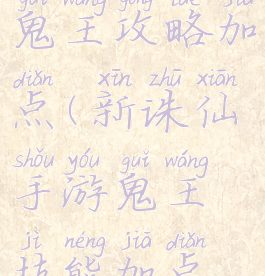 guǐ wáng gōng lüè jiā
鬼王攻略加
diǎn xīn zhū xiān
点(新诛仙
shǒu yóu guǐ wáng
手游鬼王
jì néng jiā diǎn
技能加点